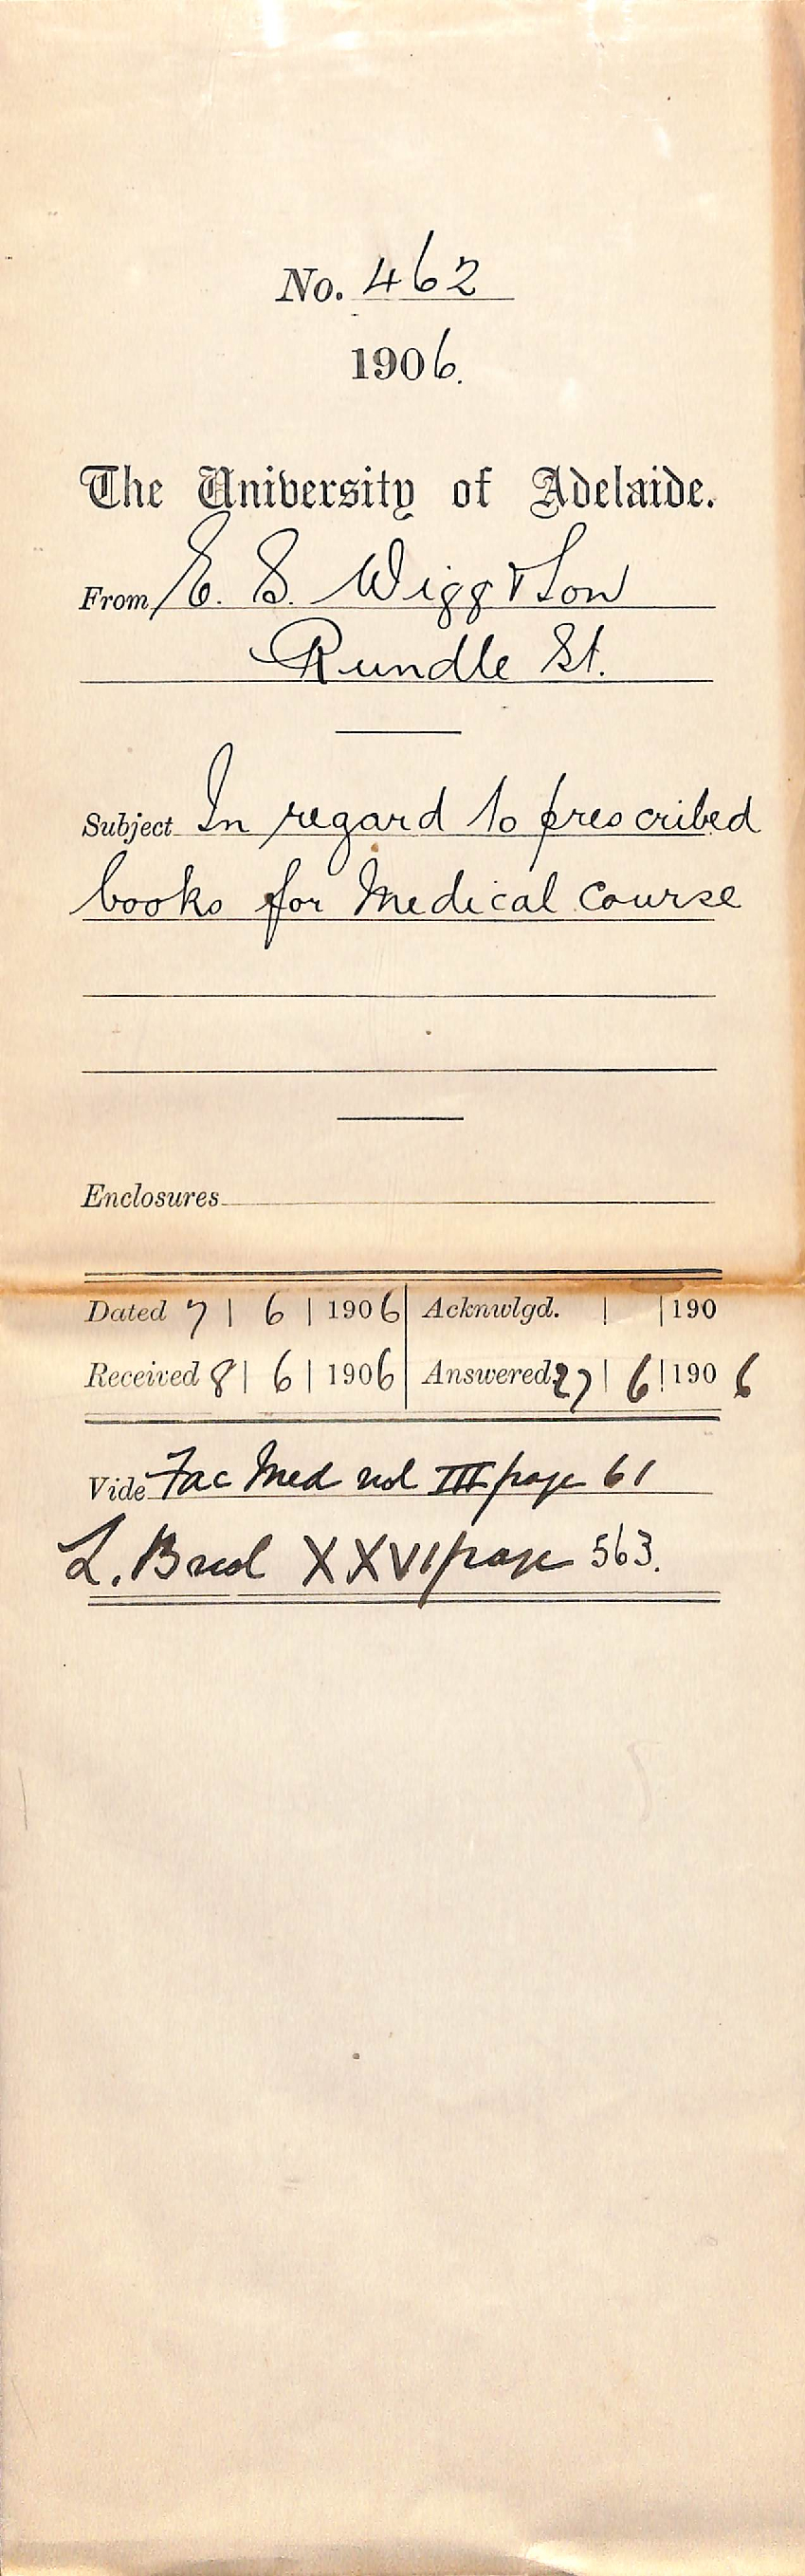 No. 462
1906.
The University of Adelaide.
From E. S. Wigg & Son
Rundle St.
Subject In regard to prescribed
books for Medical Course
Enclosures
Dated 7 | 6 | 1906 | Acknwlgd. | | 190
Received 8 | 6 | 1906 | Answered 27 | 6 | 1906
Vide Fac Med vol III page 61
L. B vol XXVI page 563.